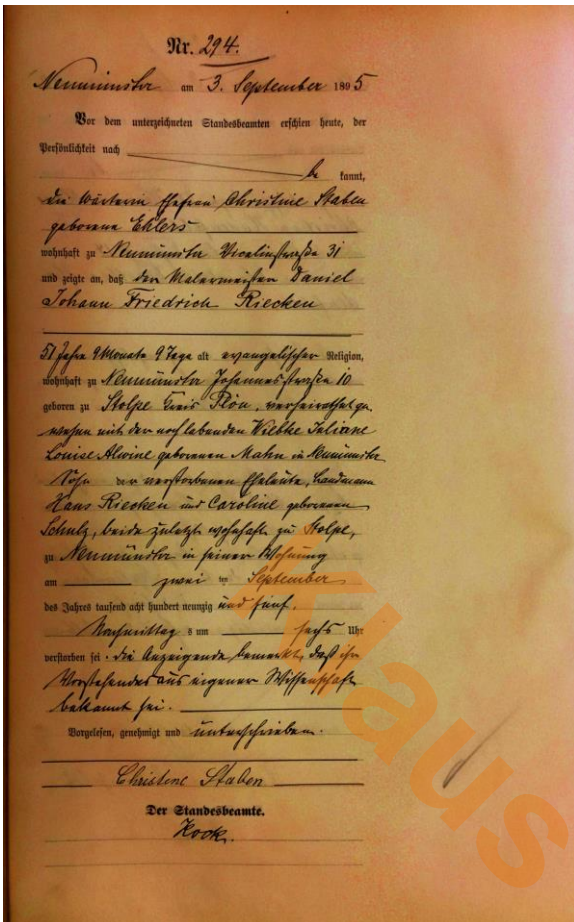 Nr. 294.
Neumünster am 3. September 1895
Vor dem unterzeichneten Standesbeamten erschien heute, der
Persönlichkeit nach
be kannt,
die Wärterin Ehefrau Christine Staben
geborene Ehlers
wohnhaft zu Neumünster Vicelinstraße 31
und zeigte an, daß der Malermeister Daniel
Johann Friedrich Riecken
51 Jahre 9 Monate 9 Tage alt evangelischer Religion,
wohnhaft zu Neumünster Johannesstraße 10
geboren zu Stolpe Kreis Plön, verheirathet ge-
wesen mit der noch lebenden Wiebke Juliane
Louise Alwine geborenen Mahn in Neumünster
Sohn der verstorbenen Eheleute, Landmann
Hans Riecken und Caroline geborenen
Schulz, beide zuletzt wohnhaft zu Stolpe,
zu Neumünster in seiner Wohnung
am zwei ten September
des Jahres tausend acht hundert neunzig und fünf,
Nachmittag s um sechs Uhr
verstorben sei. Die Anzeigende bemerkt, daß ihr
Vorstehendes aus eigener Wissenschaft
bekannt sei.
Vorgelesen, genehmigt und unterschrieben.
Christine Staben
Der Standesbeamte.
Kock.
Klaus